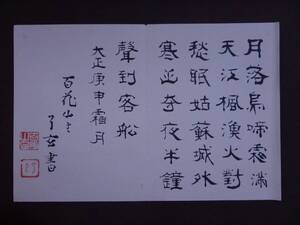 月落烏啼霜滿
天江楓漁火對
愁眠姑蘇城外
寒山寺夜半鐘
聲到客船
大正庚申霜月
百花山
書